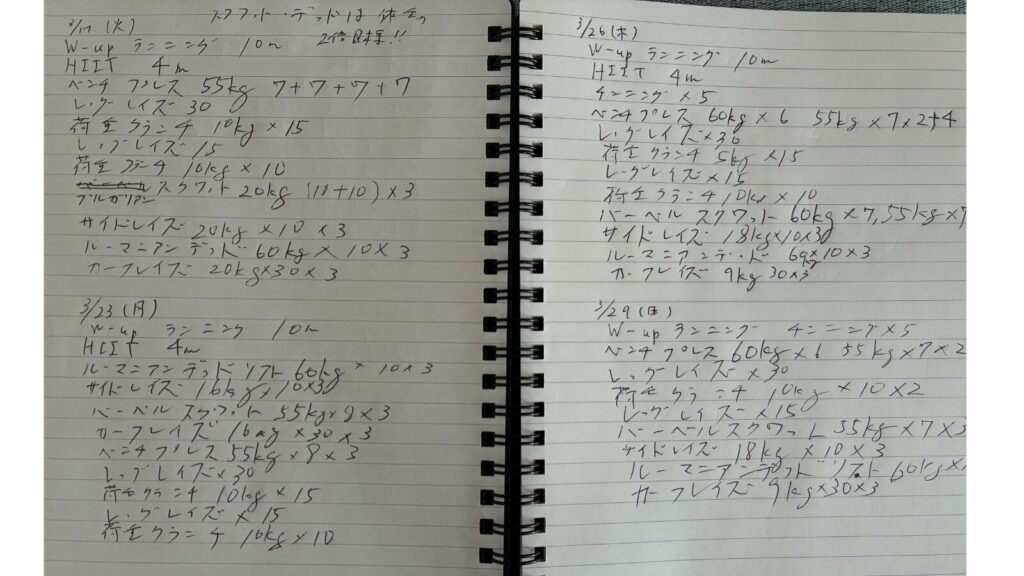 3/17 (火) スクワット・デッドは 体重の
2倍目標!!
W-up ランニング 10m
HIIT 4m
ベンチ プレス 55kg 7+7+7+7
レッグレイズ 30
荷重 クランチ 10kg × 15
レッグレイズ 15
荷重 クランチ 10kg × 10
ブルガリアン スクワット 20kg (10+10) × 3
サイドレイズ 20kg × 10 × 3
ルーマニアン デッド 60kg × 10 × 3
カーフレイズ 20kg×30×3
3/23 (月)
W-up ランニング 10m
HIIT 4m
ルーマニアン デッドリフト 60kg × 10×3
サイドレイズ 16kg×10×3
バーベル スクワット 55kg×8×3
カーフレイズ 16kg×30×3
ベンチ プレス 55kg×8×3
レッグレイズ×30
荷重クランチ 10kg×15
レッグレイズ ×15
荷重クランチ 10kg×10
3/26 (木)
W-up ランニング 10m
HIIT 4m
チンニング ×5
ベンチプレス 60kg×6 55kg×7×2+4
レッグレイズ×30
荷重クランチ 5kg×15
レッグレイズ×15
荷重クランチ10kg×10
バーベル スクワット 60kg×7,55kg×7
サイドレイズ 18kg×10×3
ルーマニアンデッド 60kg×10×3
カーフレイズ 9kg 30×3
3/29 (日)
W-up ランニング チンニング×5
ベンチ プレス 60kg×6 55kg×7×2
レッグレイズ ×30
荷重クランチ 10kg×10×2
レッグレイズ×15
バーベルスクワット 55kg×7×3
サイドレイズ 18kg×10×3
ルーマニアンデッドリフト 60kg×
カーフレイズ 9kg×30×3